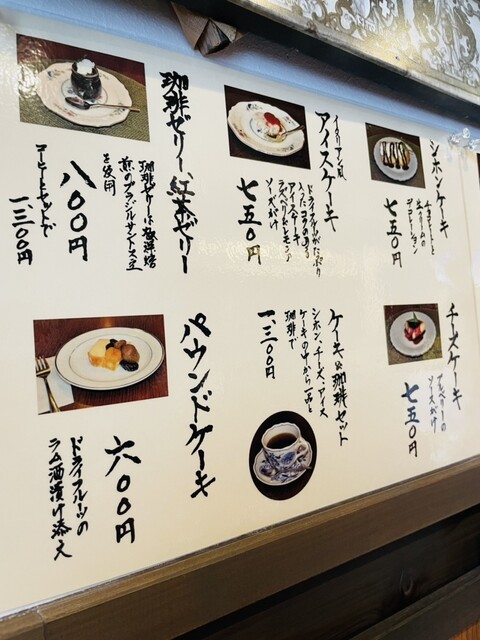 シホンケーキ
チョコレートと
生クリームの
デコレーション
七五〇円
イタリアン風
アイスケーキ
ドライフルーツがたっぷり
入ったコクのある
アイスケーキ
ラズベリーとモンブ
ソースがけ
七五〇円
珈琲ゼリー、紅茶ゼリー
珈琲ゼリーは極深焙
煎のブラジルサントス豆
を使用
八〇〇円
コーヒーとセットで
一、三〇〇円
チーズケーキ
ブルベリーの
ソースがけ
七五〇円
ケーキと珈琲セット
シホン、チーズ、アイス
ケーキの中から一品と
珈琲で
一、三〇〇円
パウンドケーキ
六〇〇円
ドライフルーツの
ラム酒漬け添え